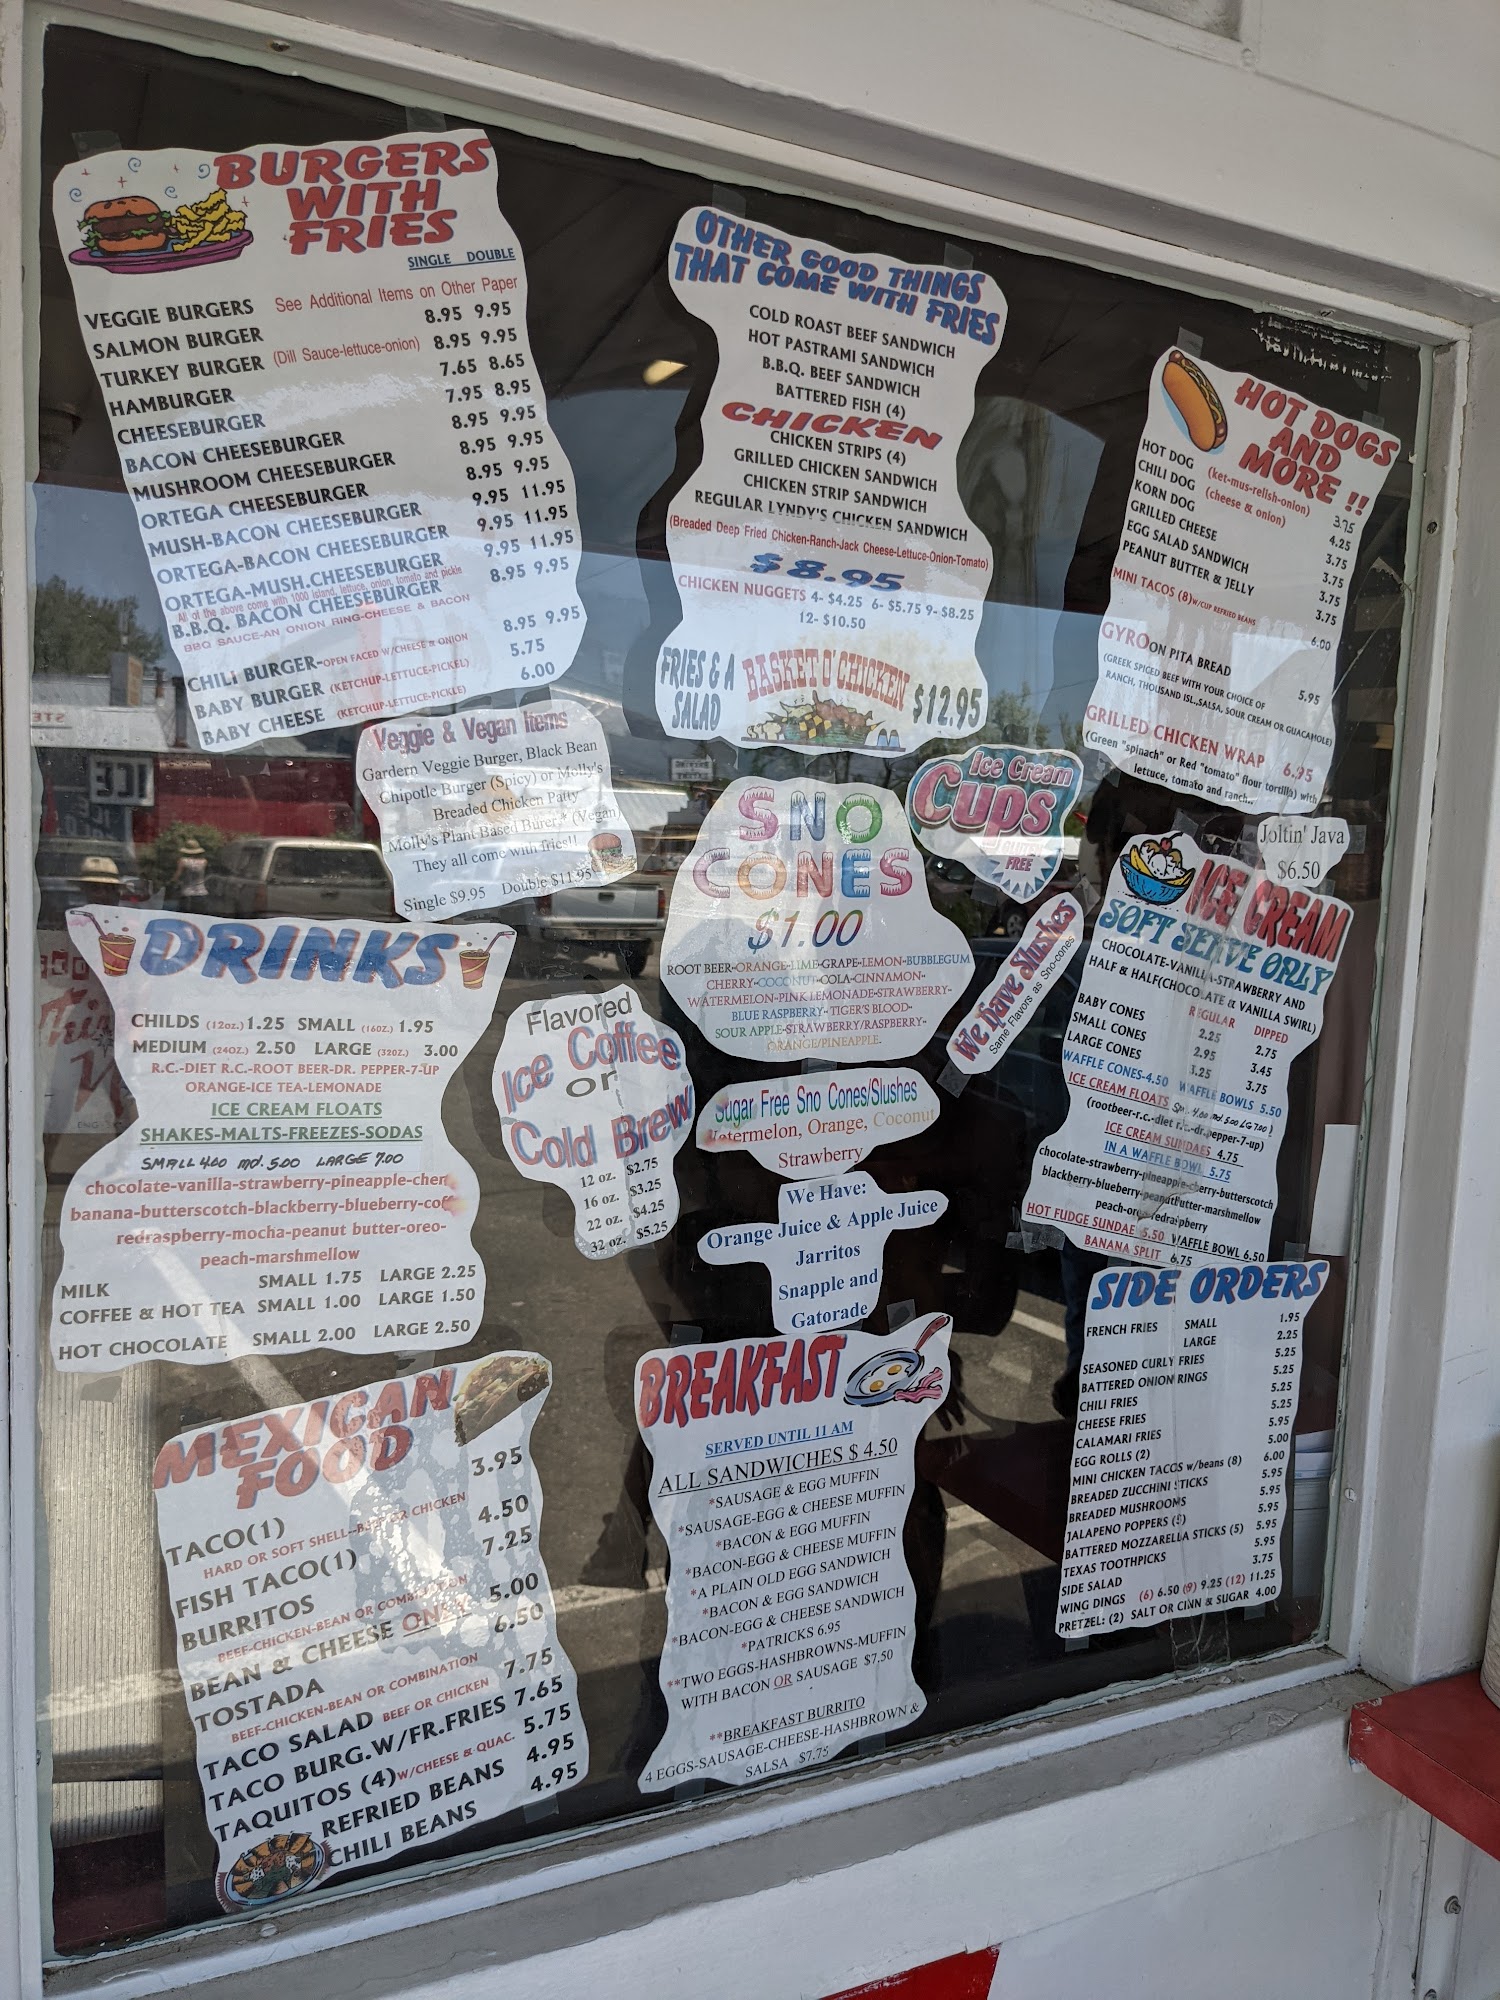 BURGERS
WITH
FRIES
SINGLE DOUBLE
VEGGIE BURGERS See Additional Items on Other Paper
SALMON BURGER 8.95 9.95
TURKEY BURGER (Dill Sauce-lettuce-onion) 8.95 9.95
HAMBURGER 7.65 8.65
CHEESEBURGER 7.95 8.95
BACON CHEESEBURGER 8.95 9.95
MUSHROOM CHEESEBURGER 8.95 9.95
ORTEGA CHEESEBURGER 8.95 9.95
MUSH-BACON CHEESEBURGER 9.95 11.95
ORTEGA-BACON CHEESEBURGER 9.95 11.95
ORTEGA-MUSH.CHEESEBURGER 9.95 11.95
All of the above come with 1000 island, lettuce, onion, tomato and pickle
B.B.Q. BACON CHEESEBURGER 8.95 9.95
BBQ SAUCE-AN ONION RING-CHEESE & BACON
CHILI BURGER-OPEN FACED W/CHEESE & ONION 8.95 9.95
BABY BURGER (KETCHUP-LETTUCE-PICKEL) 5.75
BABY CHEESE (KETCHUP-LETTUCE-PICKLE) 6.00
OTHER GOOD THINGS
THAT COME WITH FRIES
COLD ROAST BEEF SANDWICH
HOT PASTRAMI SANDWICH
B.B.Q. BEEF SANDWICH
BATTERED FISH (4)
CHICKEN
CHICKEN STRIPS (4)
GRILLED CHICKEN SANDWICH
CHICKEN STRIP SANDWICH
REGULAR LYNDY'S CHICKEN SANDWICH
(Breaded Deep Fried Chicken-Ranch-Jack Cheese-Lettuce-Onion-Tomato)
$8.95
CHICKEN NUGGETS 4- $4.25 6- $5.75 9- $8.25
12- $10.50
FRIES & A
SALAD
BASKET O' CHICKEN
$12.95
HOT DOGS
AND
MORE !!
HOT DOG (ket-mus-relish-onion) 3.75
CHILI DOG (cheese & onion) 4.25
KORN DOG 3.75
GRILLED CHEESE 3.75
EGG SALAD SANDWICH 3.75
PEANUT BUTTER & JELLY 3.75
MINI TACOS (8)W/CUP REFRIED BEANS 6.00
GYRO ON PITA BREAD 5.95
(GREEK SPICED BEEF WITH YOUR CHOICE OF
RANCH, THOUSAND ISL.,SALSA, SOUR CREAM OR GUACAMOLE)
GRILLED CHICKEN WRAP 6.95
(Green "spinach" or Red "tomato" flour tortilla) with
lettuce, tomato and ranch..
Veggie & Vegan Items
Gardern Veggie Burger, Black Bean
Chipotle Burger (Spicy) or Molly's
Breaded Chicken Patty
Molly's Plant-Based Burer,* (Vegan)
They all come with fries!!
Single $9.95 Double $11.95
SNO
CONES
$1.00
ROOT BEER-ORANGE-LIME-GRAPE-LEMON-BUBBLEGUM
CHERRY-COCONUT-COLA-CINNAMON-
WATERMELON-PINK LEMONADE-STRAWBERRY-
BLUE RASPBERRY-TIGER'S BLOOD-
SOUR APPLE-STRAWBERRY/RASPBERRY-
ORANGE/PINEAPPLE.
Ice Cream
Cups
GLUTEN
FREE
We Have Slushes
Same Flavors as Sno-cones
Joltin' Java
$6.50
ICE CREAM
SOFT SERVE ONLY
CHOCOLATE-VANILLA-STRAWBERRY AND
HALF & HALF(CHOCOLATE & VANILLA SWIRL)
REGULAR DIPPED
BABY CONES 2.25 2.75
SMALL CONES 2.95 3.45
LARGE CONES 3.25 3.75
WAFFLE CONES-4.50 WAFFLE BOWLS 5.50
ICE CREAM FLOATS Sm. 4.00 md 5.00 LG 7.00
(rootbeer-r.c.-diet r.c.-dr.pepper-7-up)
ICE CREAM SUNDAES 4.75
IN A WAFFLE BOWL 5.75
chocolate-strawberry-pineapple-cherry-butterscotch
blackberry-blueberry-peanutbutter-marshmellow
peach-oreo-redraspberry
HOT FUDGE SUNDAE 5.50 WAFFLE BOWL 6.50
BANANA SPLIT 6.75
DRINKS
CHILDS (12oz.) 1.25 SMALL (16OZ.) 1.95
MEDIUM (24OZ.) 2.50 LARGE (32OZ.) 3.00
R.C.-DIET R.C.-ROOT BEER-DR. PEPPER-7-UP
ORANGE-ICE TEA-LEMONADE
ICE CREAM FLOATS
SHAKES-MALTS-FREEZES-SODAS
SMALL 4.00 md. 5.00 LARGE 7.00
chocolate-vanilla-strawberry-pineapple-cher
banana-butterscotch-blackberry-blueberry-coff
redraspberry-mocha-peanut butter-oreo-
peach-marshmellow
MILK SMALL 1.75 LARGE 2.25
COFFEE & HOT TEA SMALL 1.00 LARGE 1.50
HOT CHOCOLATE SMALL 2.00 LARGE 2.50
Flavored
Ice Coffee
or
Cold Brew
12 oz. $2.75
16 oz. $3.25
22 oz. $4.25
32 oz. $5.25
Sugar Free Sno Cones/Slushes
Watermelon, Orange, Coconut
Strawberry
We Have:
Orange Juice & Apple Juice
Jarritos
Snapple and
Gatorade
MEXICAN
FOOD
TACO(1) 3.95
HARD OR SOFT SHELL--BEEF OR CHICKEN
FISH TACO(1) 4.50
BURRITOS 7.25
BEEF-CHICKEN-BEAN OR COMBINATION
BEAN & CHEESE ONLY 5.00
TOSTADA 6.50
BEEF-CHICKEN-BEAN OR COMBINATION
TACO SALAD BEEF OR CHICKEN 7.75
TACO BURG.W/FR.FRIES 7.65
TAQUITOS (4)W/CHEESE & QUAC. 5.75
REFRIED BEANS 4.95
CHILI BEANS 4.95
BREAKFAST
SERVED UNTIL 11 AM
ALL SANDWICHES $ 4.50
*SAUSAGE & EGG MUFFIN
*SAUSAGE-EGG & CHEESE MUFFIN
*BACON & EGG MUFFIN
*BACON-EGG & CHEESE MUFFIN
*A PLAIN OLD EGG SANDWICH
*BACON & EGG SANDWICH
*BACON-EGG & CHEESE SANDWICH
*PATRICKS 6.95
**TWO EGGS-HASHBROWNS-MUFFIN
WITH BACON OR SAUSAGE $7.50
**BREAKFAST BURRITO
4 EGGS-SAUSAGE-CHEESE-HASHBROWN &
SALSA $7.75
SIDE ORDERS
FRENCH FRIES SMALL 1.95
LARGE 2.25
SEASONED CURLY FRIES 5.25
BATTERED ONION RINGS 5.25
CHILI FRIES 5.25
CHEESE FRIES 5.25
CALAMARI FRIES 5.95
EGG ROLLS (2) 5.00
MINI CHICKEN TACOS w/beans (8) 6.00
BREADED ZUCCHINI STICKS 5.95
BREADED MUSHROOMS 5.95
JALAPENO POPPERS (5) 5.95
BATTERED MOZZARELLA STICKS (5) 5.95
TEXAS TOOTHPICKS 5.95
SIDE SALAD 3.75
WING DINGS (6) 6.50 (9) 9.25 (12) 11.25
PRETZEL: (2) SALT OR CINN & SUGAR 4.00